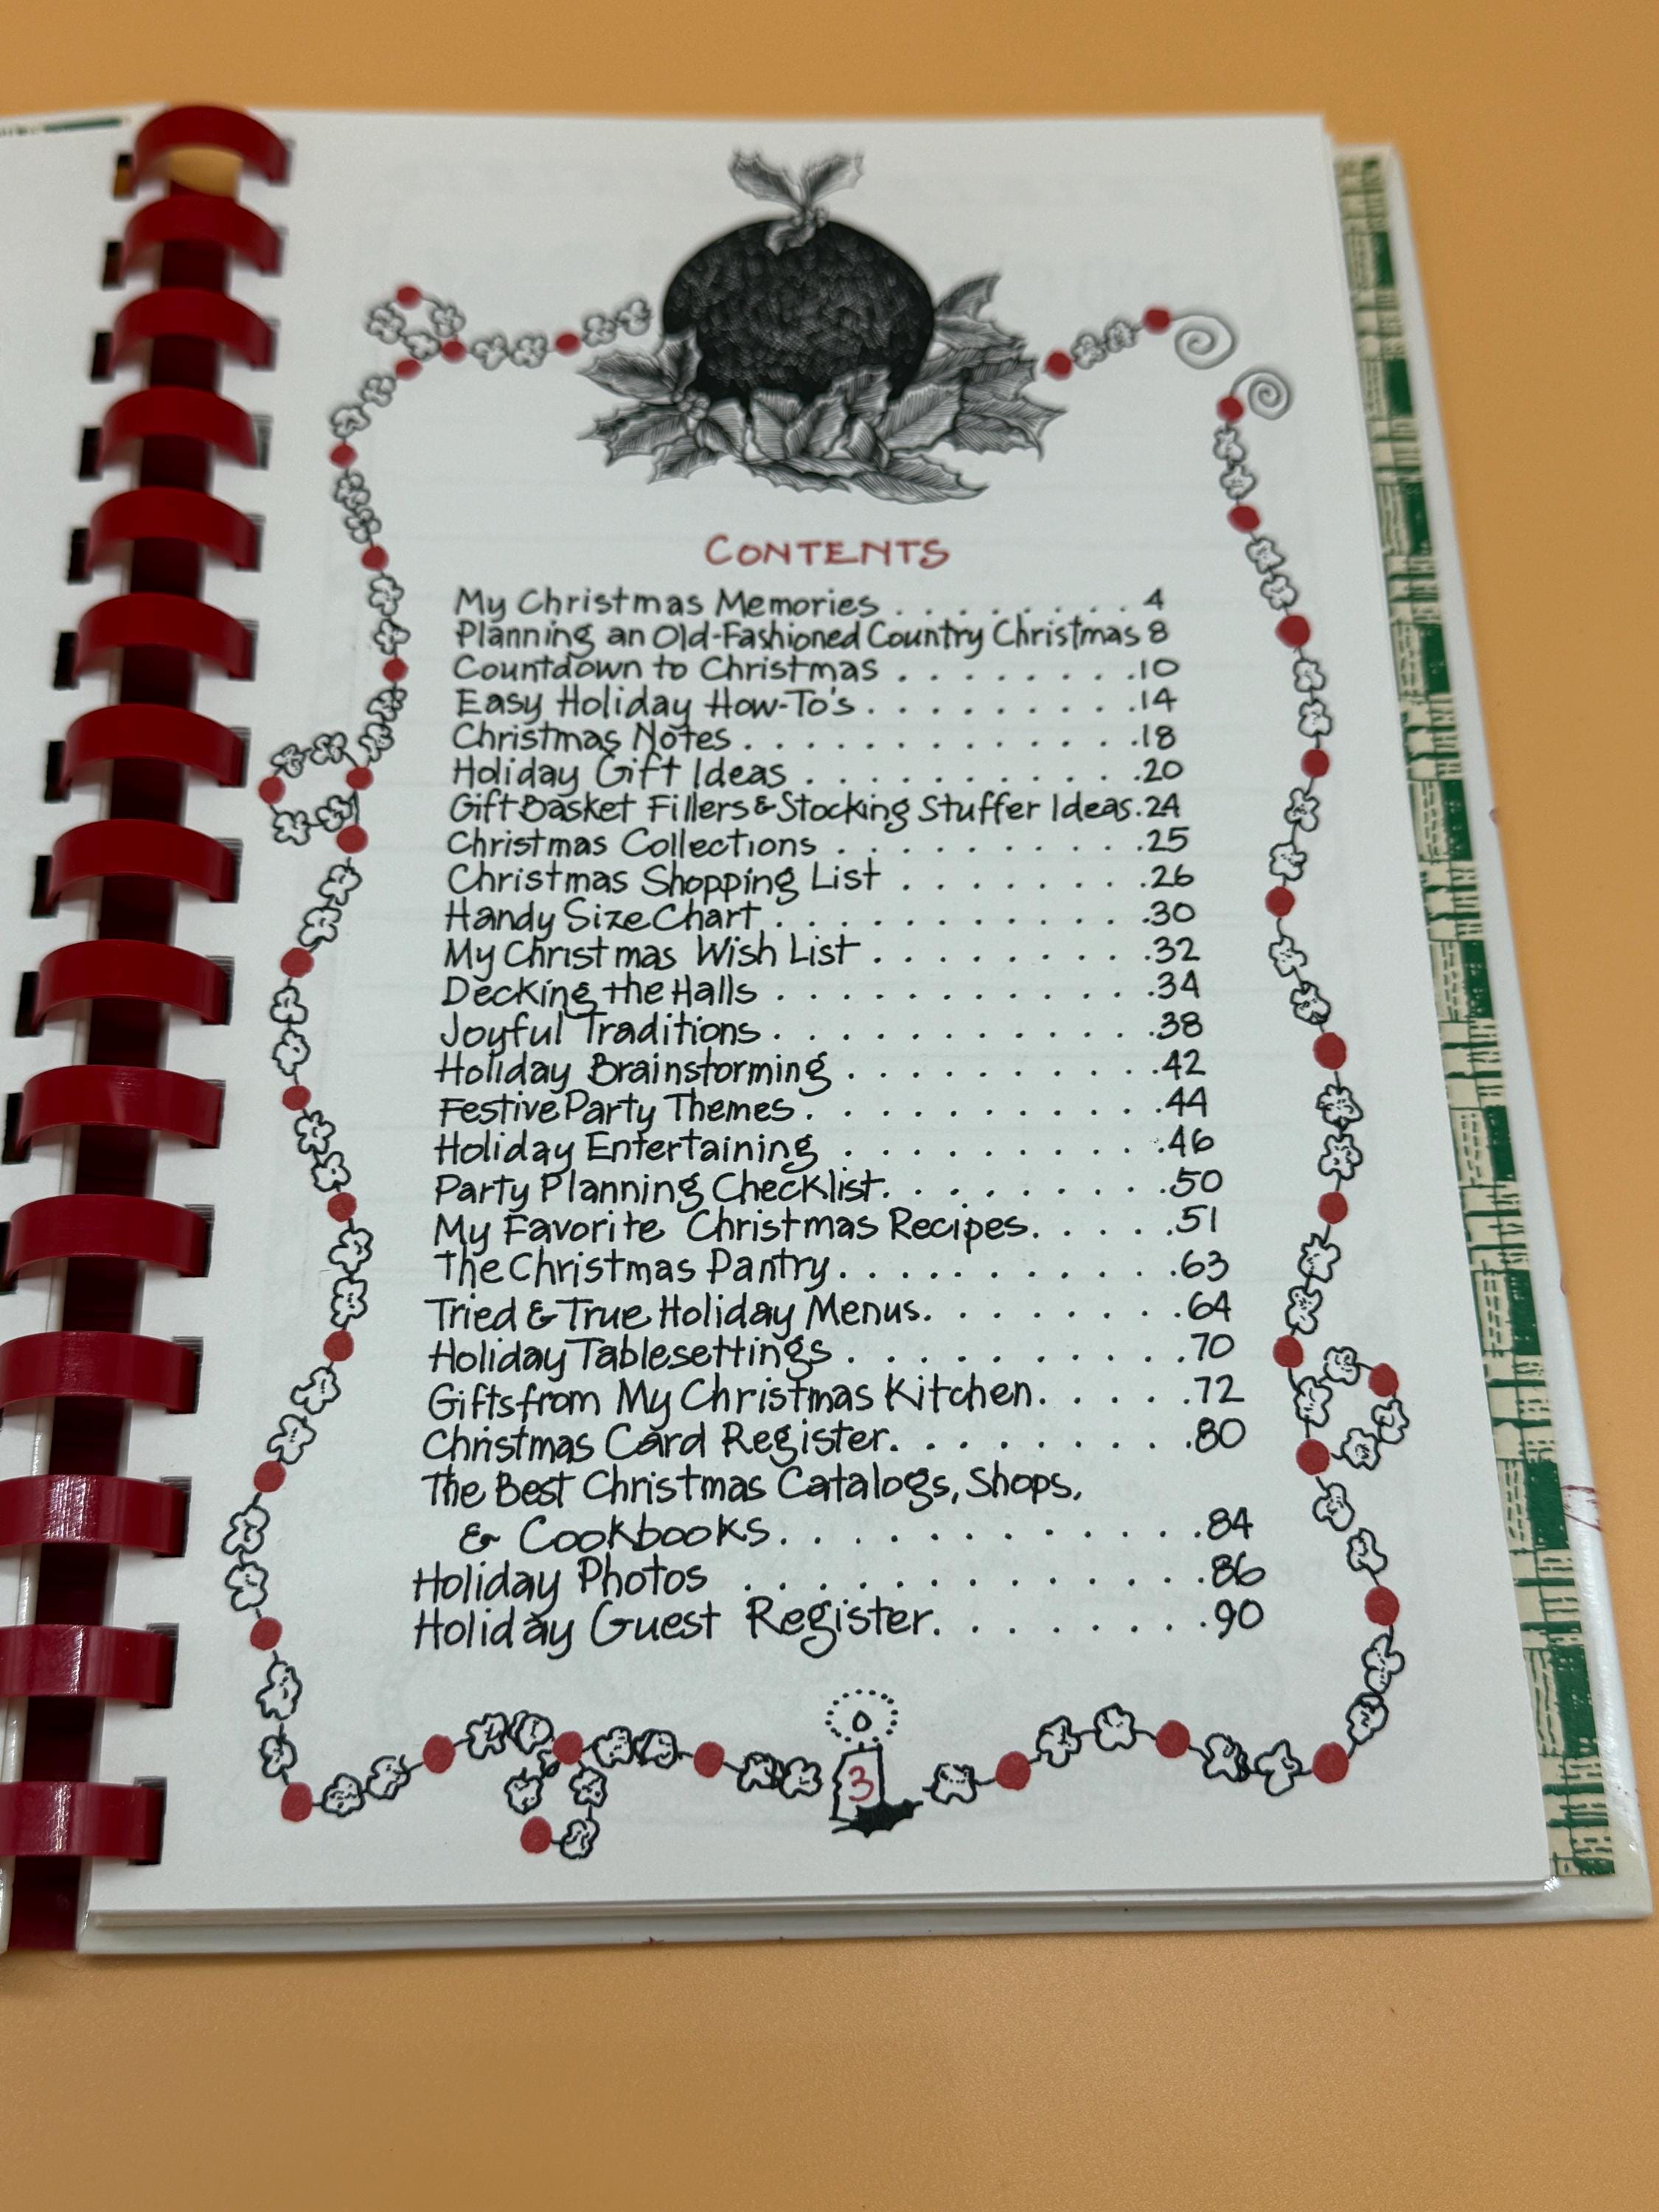 CONTENTS
My Christmas Memories . . . . . . . . 4
Planning an Old-Fashioned Country Christmas 8
Countdown to Christmas . . . . . . . . .10
Easy Holiday How-To's . . . . . . . . . .14
Christmas Notes . . . . . . . . . . . . . .18
Holiday Gift Ideas . . . . . . . . . . . .20
Gift Basket Fillers & Stocking Stuffer Ideas.24
Christmas Collections . . . . . . . . . . .25
Christmas Shopping List . . . . . . . .26
Handy Size Chart . . . . . . . . . . . . .30
My Christmas Wish List . . . . . . . . .32
Decking the Halls . . . . . . . . . . . . .34
Joyful Traditions . . . . . . . . . . . . .38
Holiday Brainstorming . . . . . . . . . .42
Festive Party Themes . . . . . . . . . . .44
Holiday Entertaining . . . . . . . . . .46
Party Planning Checklist. . . . . . . . .50
My Favorite Christmas Recipes. . . . .51
The Christmas Pantry . . . . . . . . . . .63
Tried & True Holiday Menus. . . . . . . .64
Holiday Tablesettings . . . . . . . . . . .70
Gifts from My Christmas Kitchen. . . . .72
Christmas Card Register. . . . . . . . . .80
The Best Christmas Catalogs, Shops,
& Cookbooks. . . . . . . . . . . . . .84
Holiday Photos . . . . . . . . . . . . . .86
Holiday Guest Register. . . . . . . . .90
3